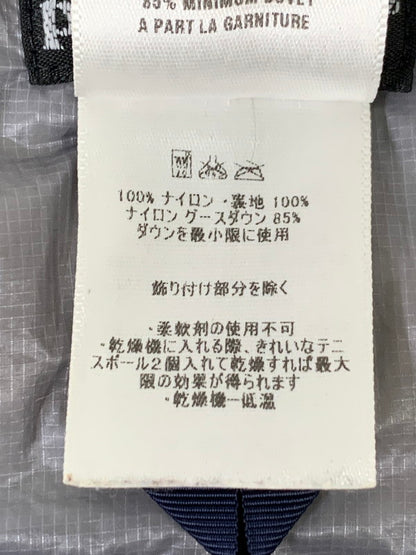 85% MINIMUM DUVET
À PART LA GARNITURE
100% ナイロン・裏地 100%
ナイロン グースダウン 85%
ダウンを最小限に使用
飾り付け部分を除く
・柔軟剤の使用不可
・乾燥機に入れる際、きれいなテニ
スボール2個入れて乾燥すれば最大
限の効果が得られます
・乾燥機ー低温